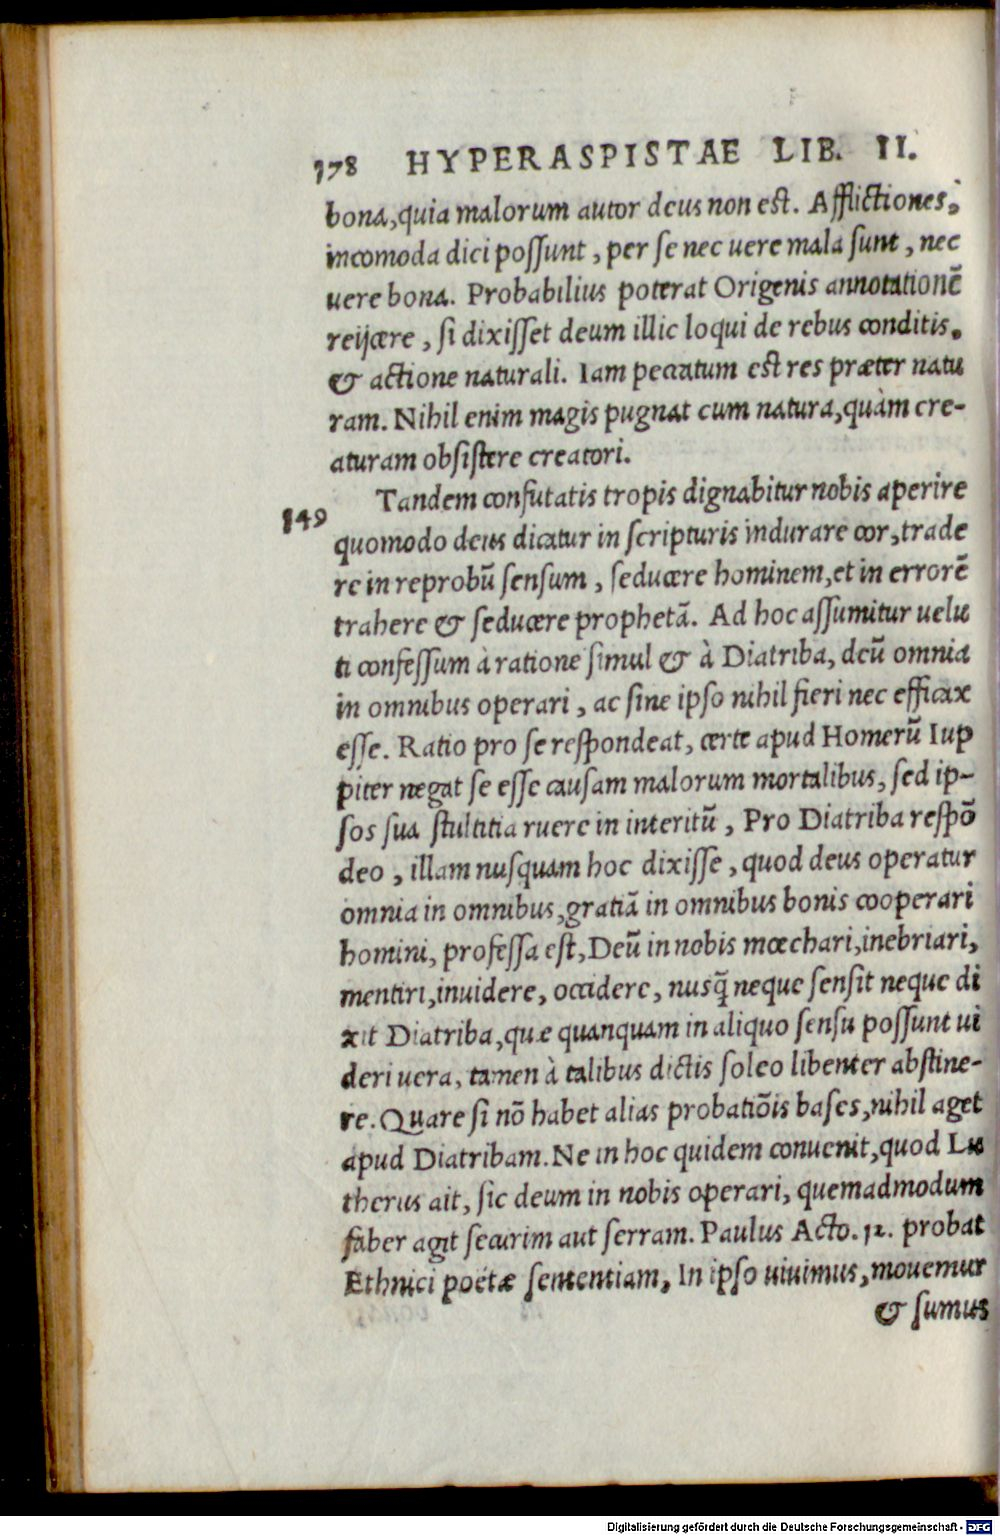 178 HYPERASPISTAE LIB. II.
bona, quia malorum autor deus non est. Afflictiones,
incomoda dici possunt, per se nec uere mala sunt, nec
uere bona. Probabilius poterat Origenis annotationē
reijcere, si dixisset deum illic loqui de rebus conditis,
& actione naturali. Iam peccatum est res præter natu
ram. Nihil enim magis pugnat cum natura, quàm cre-
aturam obsistere creatori.
Tandem confutatis tropis dignabitur nobis aperire
149
quomodo deus dicatur in scripturis indurare cor, trade
re in reprobū sensum, seducere hominem, et in errorē
trahere & seducere prophetā. Ad hoc assumitur uelu
ti confessum à ratione simul & à Diatriba, deū omnia
in omnibus operari, ac sine ipso nihil fieri nec efficax
esse. Ratio pro se respondeat, certe apud Homerū Iup
piter negat se esse causam malorum mortalibus, sed ip-
sos sua stultitia ruere in interitū, Pro Diatriba respō
deo, illam nusquam hoc dixisse, quod deus operatur
omnia in omnibus, gratiā in omnibus bonis cooperari
homini, professa est, Deū in nobis mœchari, inebriari,
mentiri, inuidere, occidere, nusq̄ neque sensit neque di
xit Diatriba, quæ quanquam in aliquo sensu possunt ui
deri uera, tamen à talibus dictis soleo libenter abstine-
re. Quare si nō habet alias probatiōis bases, nihil aget
apud Diatribam. Ne in hoc quidem conuenit, quod Lu
therus ait, sic deum in nobis operari, quemadmodum
faber agit securim aut serram. Paulus Acto. 12. probat
Ethnici poëtæ sententiam, In ipso uiuimus, mouemur
& sumus
Digitalisierung gefördert durch die Deutsche Forschungsgemeinschaft - DFG